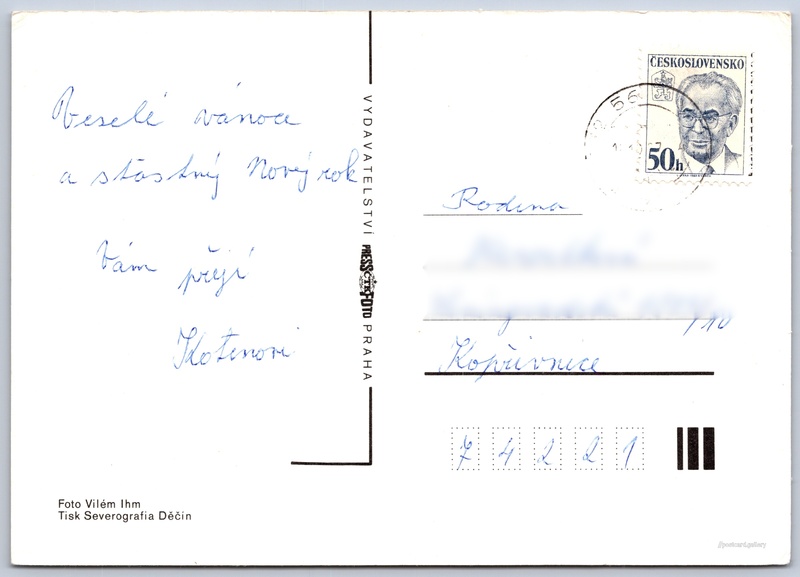 Veselé vánoce
a stastný Nový rok
Vám přejí
Kotenovi
VYDAVATELSTVÍ PRESSFOTO PRAHA
ČTK
ČESKOSLOVENSKO
50h
56
Rodina
/10
Kopřivnice
74221
Foto Vilém Ihm
Tisk Severografia Děčín